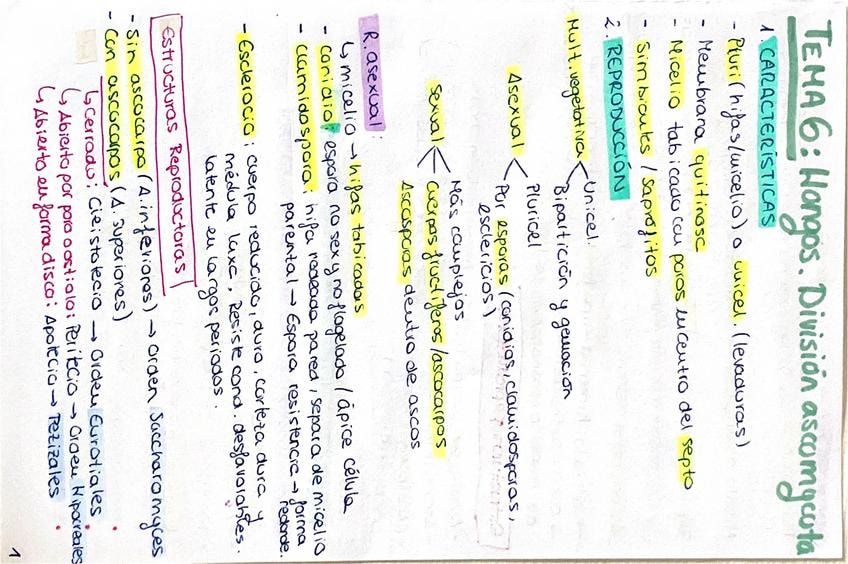 TEMA 6: Hongos. División ascomycota
1. CARACTERÍSTICAS
- Pluri (hifas/micelio) o unicel. (levaduras)
- Membrana quitinosa
- Micelio tabicado con poros en centro del septo
- Simbiontes / saprófitos
2. REPRODUCCIÓN
Mult. vegetativa < Unicel.
Bipartición y gemación
Asexual < Pluricel
Por esporas (conidias, clamidosporas,
esclerocios)
Sexual < Más complejos
Cuerpos fructíferos/ascocarpos
Ascosporas dentro de ascos
R. asexual:
↳ micelio → hifas tabicadas
- conidio: espora no sex y no flagelada / ápice célula
- clamidospora: hifa rodeada pared, separa de micelio
parental → Espora resistencia → forma
redonde.
- Esclerocio: cuerpo reducido, duro, corteza dura y
médula laxa, Resiste cond. desfavorables.
latente en largos periodos.
Estructuras Reproductoras
- Sin ascocarpo (A. inferiores) → orden Saccharomyces
- Con ascocarpos (A. superiores)
↳ Cerrado: Cleistotecio → Orden Eurotiales
↳ Abierto por poro o ostiolo: Peritecio → Orden Hiporreales
↳ Abierto en forma disco: Apotecio → Pezizales
1